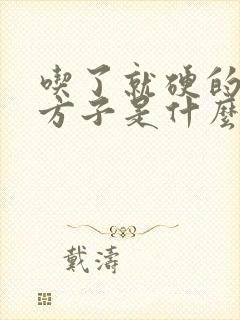 喫了就硬的
方子是什麼
戴濤